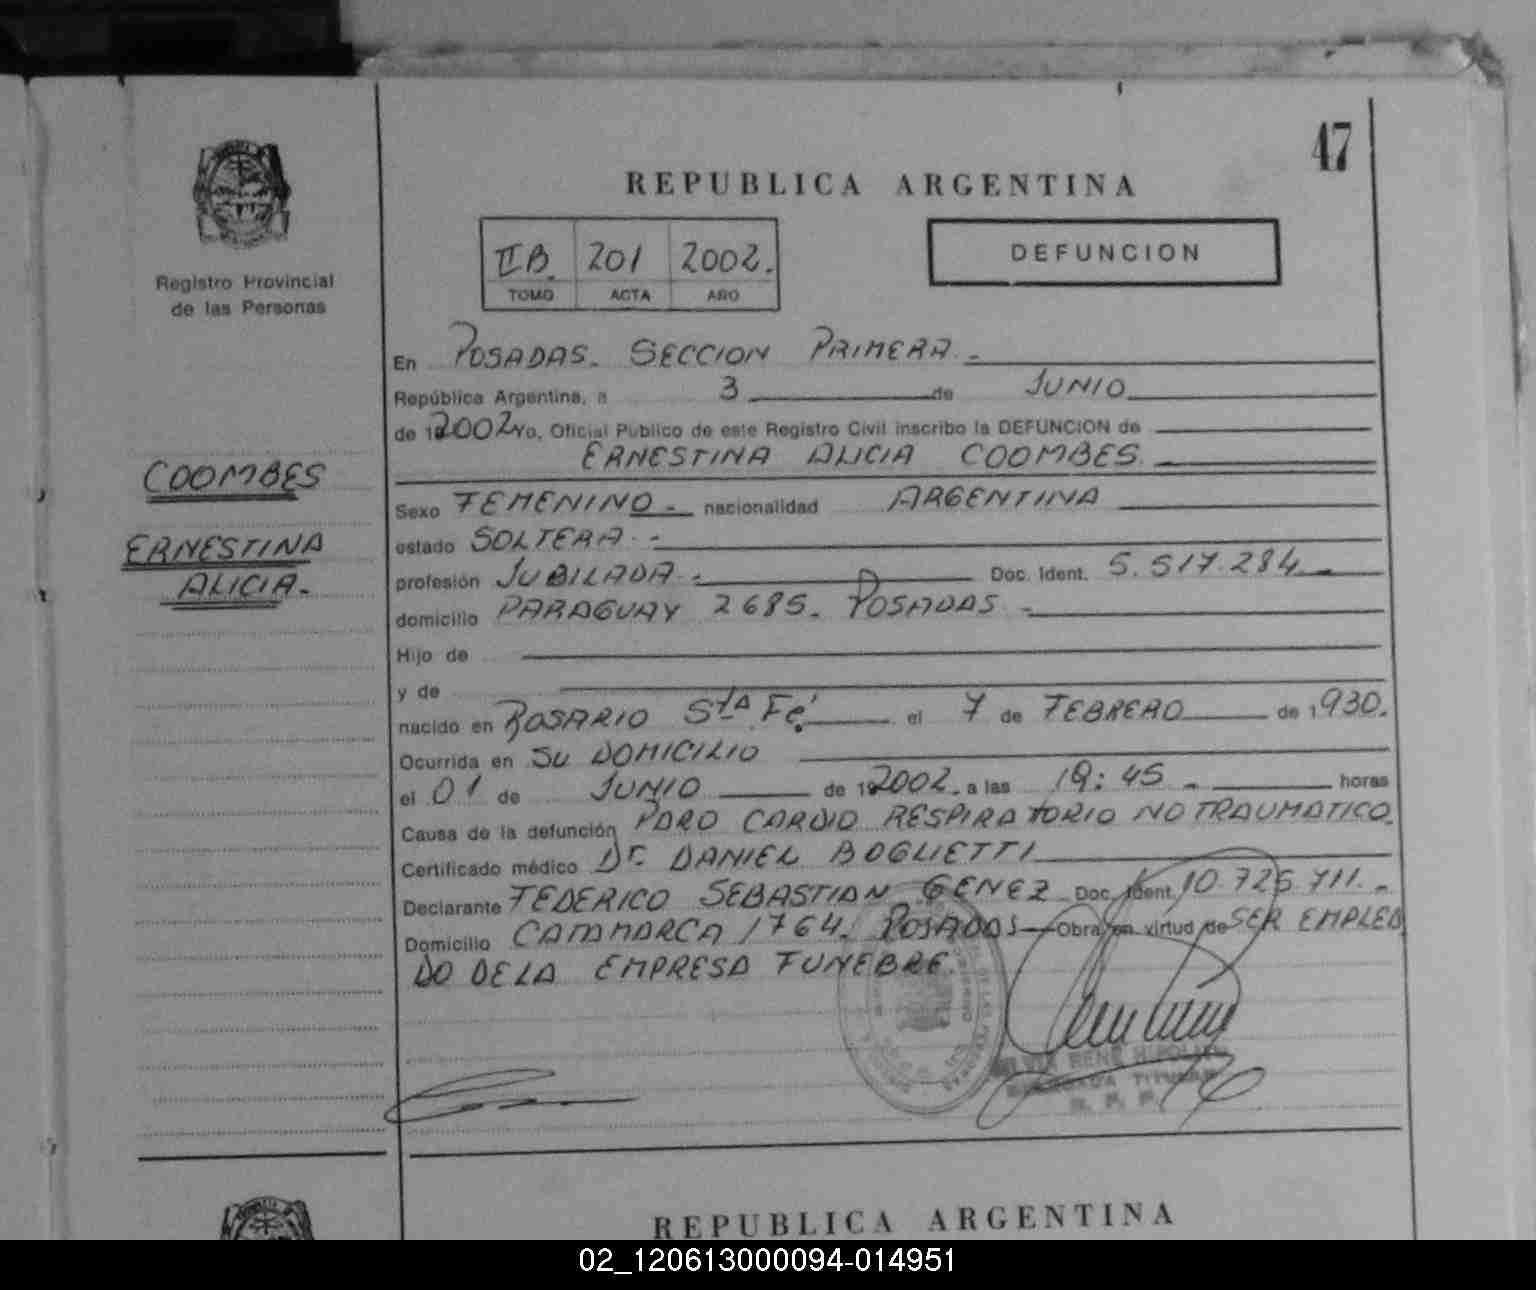 47
REPUBLICA ARGENTINA
IIB. 201 2002.
TOMO ACTA AÑO
DEFUNCION
Registro Provincial
de las Personas
COOMBES
ERNESTINA
ALICIA.-
En POSADAS. SECCION PRIMERA.-
República Argentina, a 3 de JUNIO
de 2002 Yo, Oficial Publico de este Registro Civil inscribo la DEFUNCION de
ERNESTINA ALICIA COOMBES.
Sexo FEMENINO.- nacionalidad ARGENTINA
estado SOLTERA.-
profesión JUBILADA.- Doc. Ident. 5.517.284.-
domicilio PARAGUAY 2685. POSADAS.-
Hijo de
y de
nacido en ROSARIO Sta Fé. el 7 de FEBRERO de 1930.
Ocurrida en SU DOMICILIO
el 01 de JUNIO de 2002. a las 19:45.- horas
Causa de la defunción PARO CARDIO RESPIRATORIO NO TRAUMATICO.
Certificado médico Dr. DANIEL BOGLIETTI
Declarante FEDERICO SEBASTIAN GENEZ Doc. Ident. 10.725.711.-
Domicilio CATAMARCA 1764. POSADAS Obra en virtud de SER EMPLEA
DO DE LA EMPRESA FUNEBRE.
RENE HIPOLITO
TITULAR
R. P. P.
REPUBLICA ARGENTINA
02_120613000094-014951